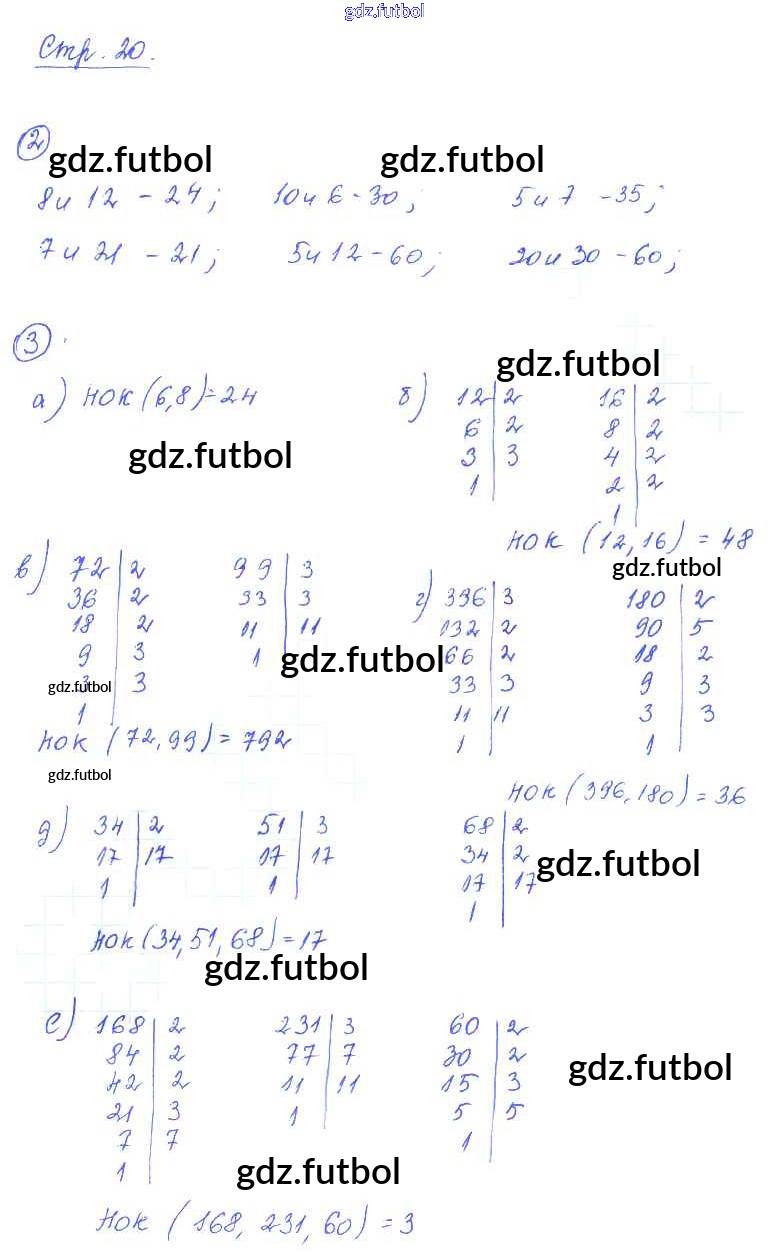 gdz.futbol
Стр. 20.
2
gdz.futbol gdz.futbol
8 и 12 - 24; 10 и 6 - 30; 5 и 7 - 35;
7 и 21 - 21; 5 и 12 - 60; 20 и 30 - 60;
3
gdz.futbol
а) НОК (6,8) = 24 б) 12 | 2 16 | 2
6 | 2 8 | 2
gdz.futbol
3 | 3 4 | 2
1 | 2 | 2
1
НОК (12, 16) = 48
gdz.futbol
в) 72 | 2 99 | 3
36 | 2 33 | 3
18 | 2 11 | 11
9 | 3 1
3 | 3
1
gdz.futbol
gdz.futbol
НОК (72, 99) = 792
gdz.futbol
г) 396 | 3 180 | 2
132 | 2 90 | 5
66 | 2 18 | 2
33 | 3 9 | 3
11 | 11 3 | 3
1 | 1
НОК (396, 180) = 36
д) 34 | 2 51 | 3 68 | 2
17 | 17 17 | 17 34 | 2
1 | 1 | 17 | 17
1
gdz.futbol
НОК (34, 51, 68) = 17
gdz.futbol
е) 168 | 2 231 | 3 60 | 2
84 | 2 77 | 7 30 | 2
42 | 2 11 | 11 15 | 3
21 | 3 1 | 5 | 5
7 | 7 1
1
gdz.futbol
gdz.futbol
НОК (168, 231, 60) = 3